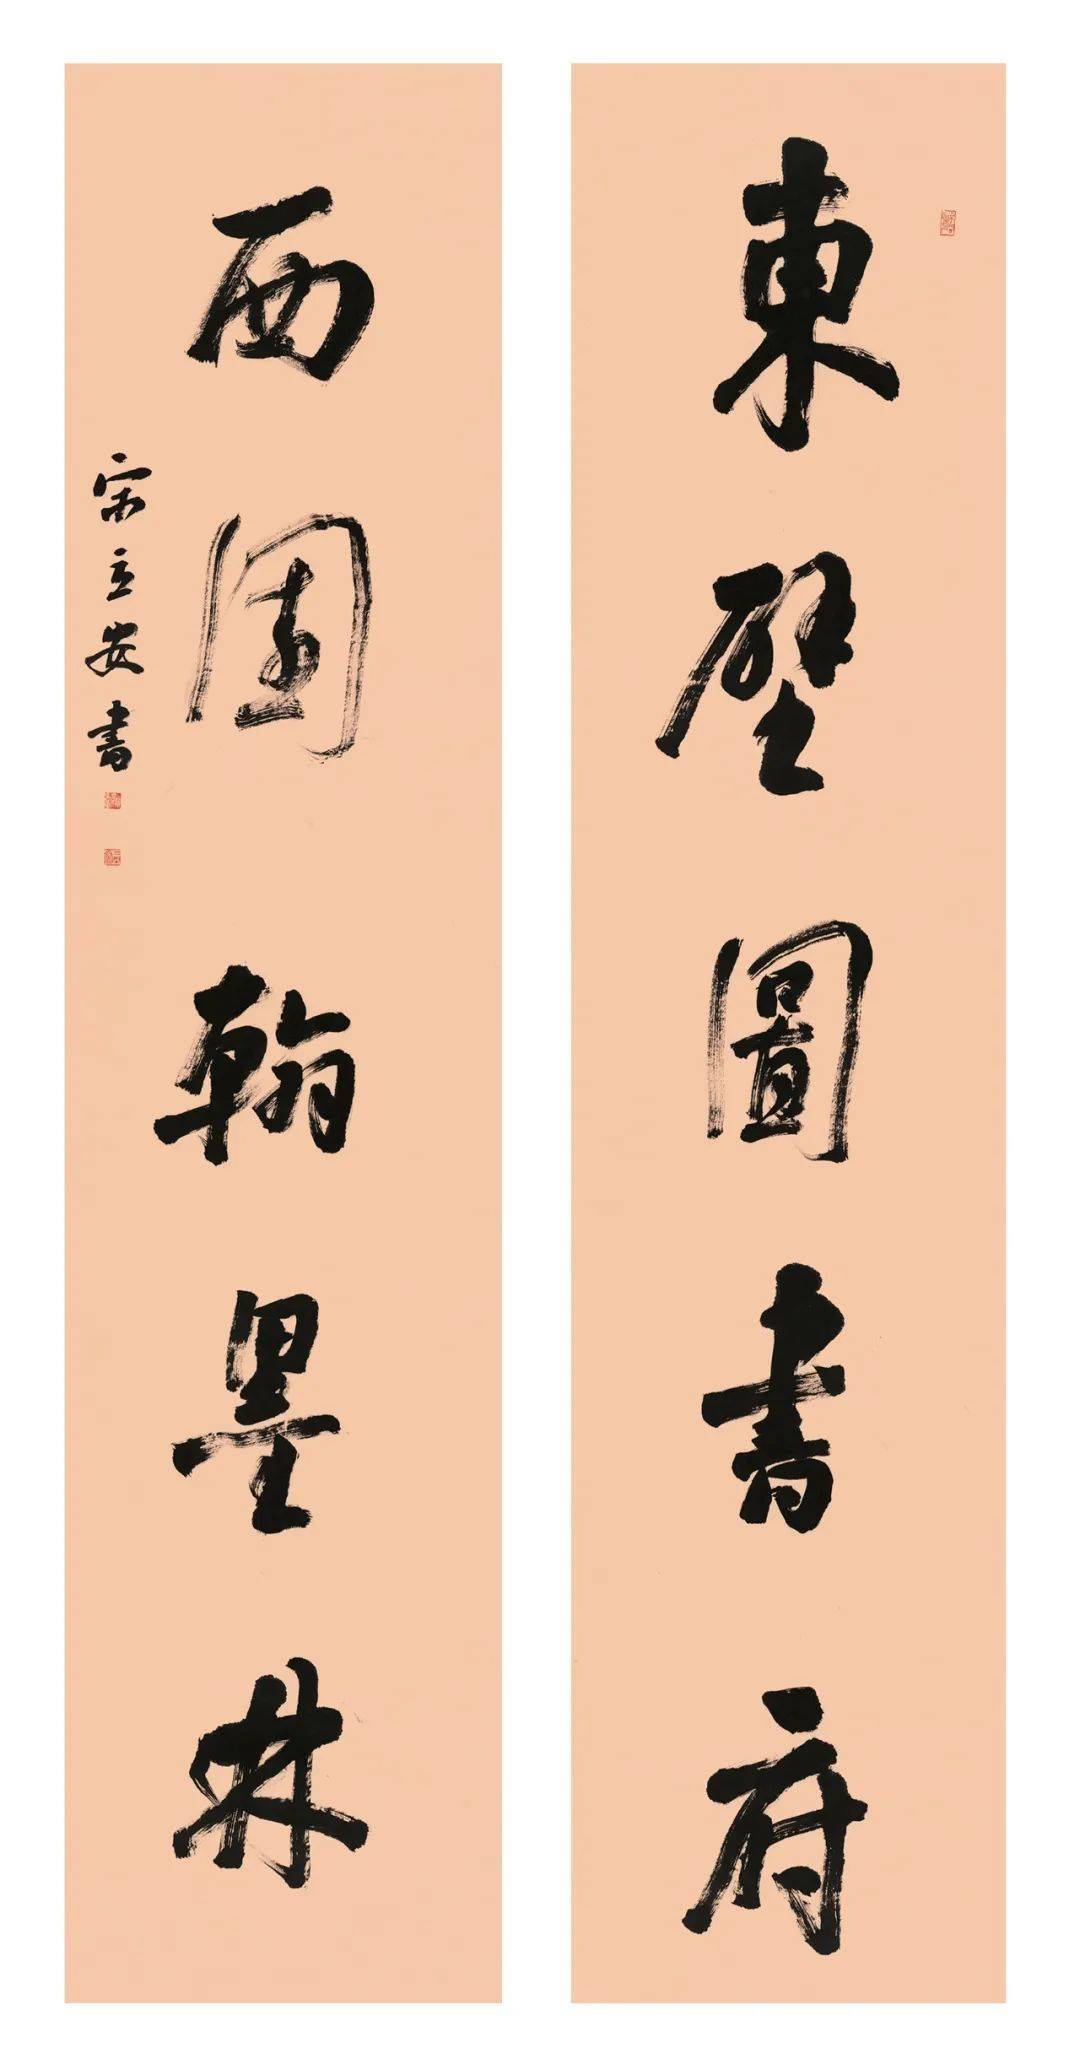 東壁圖書府
西園翰墨林
宋立安書